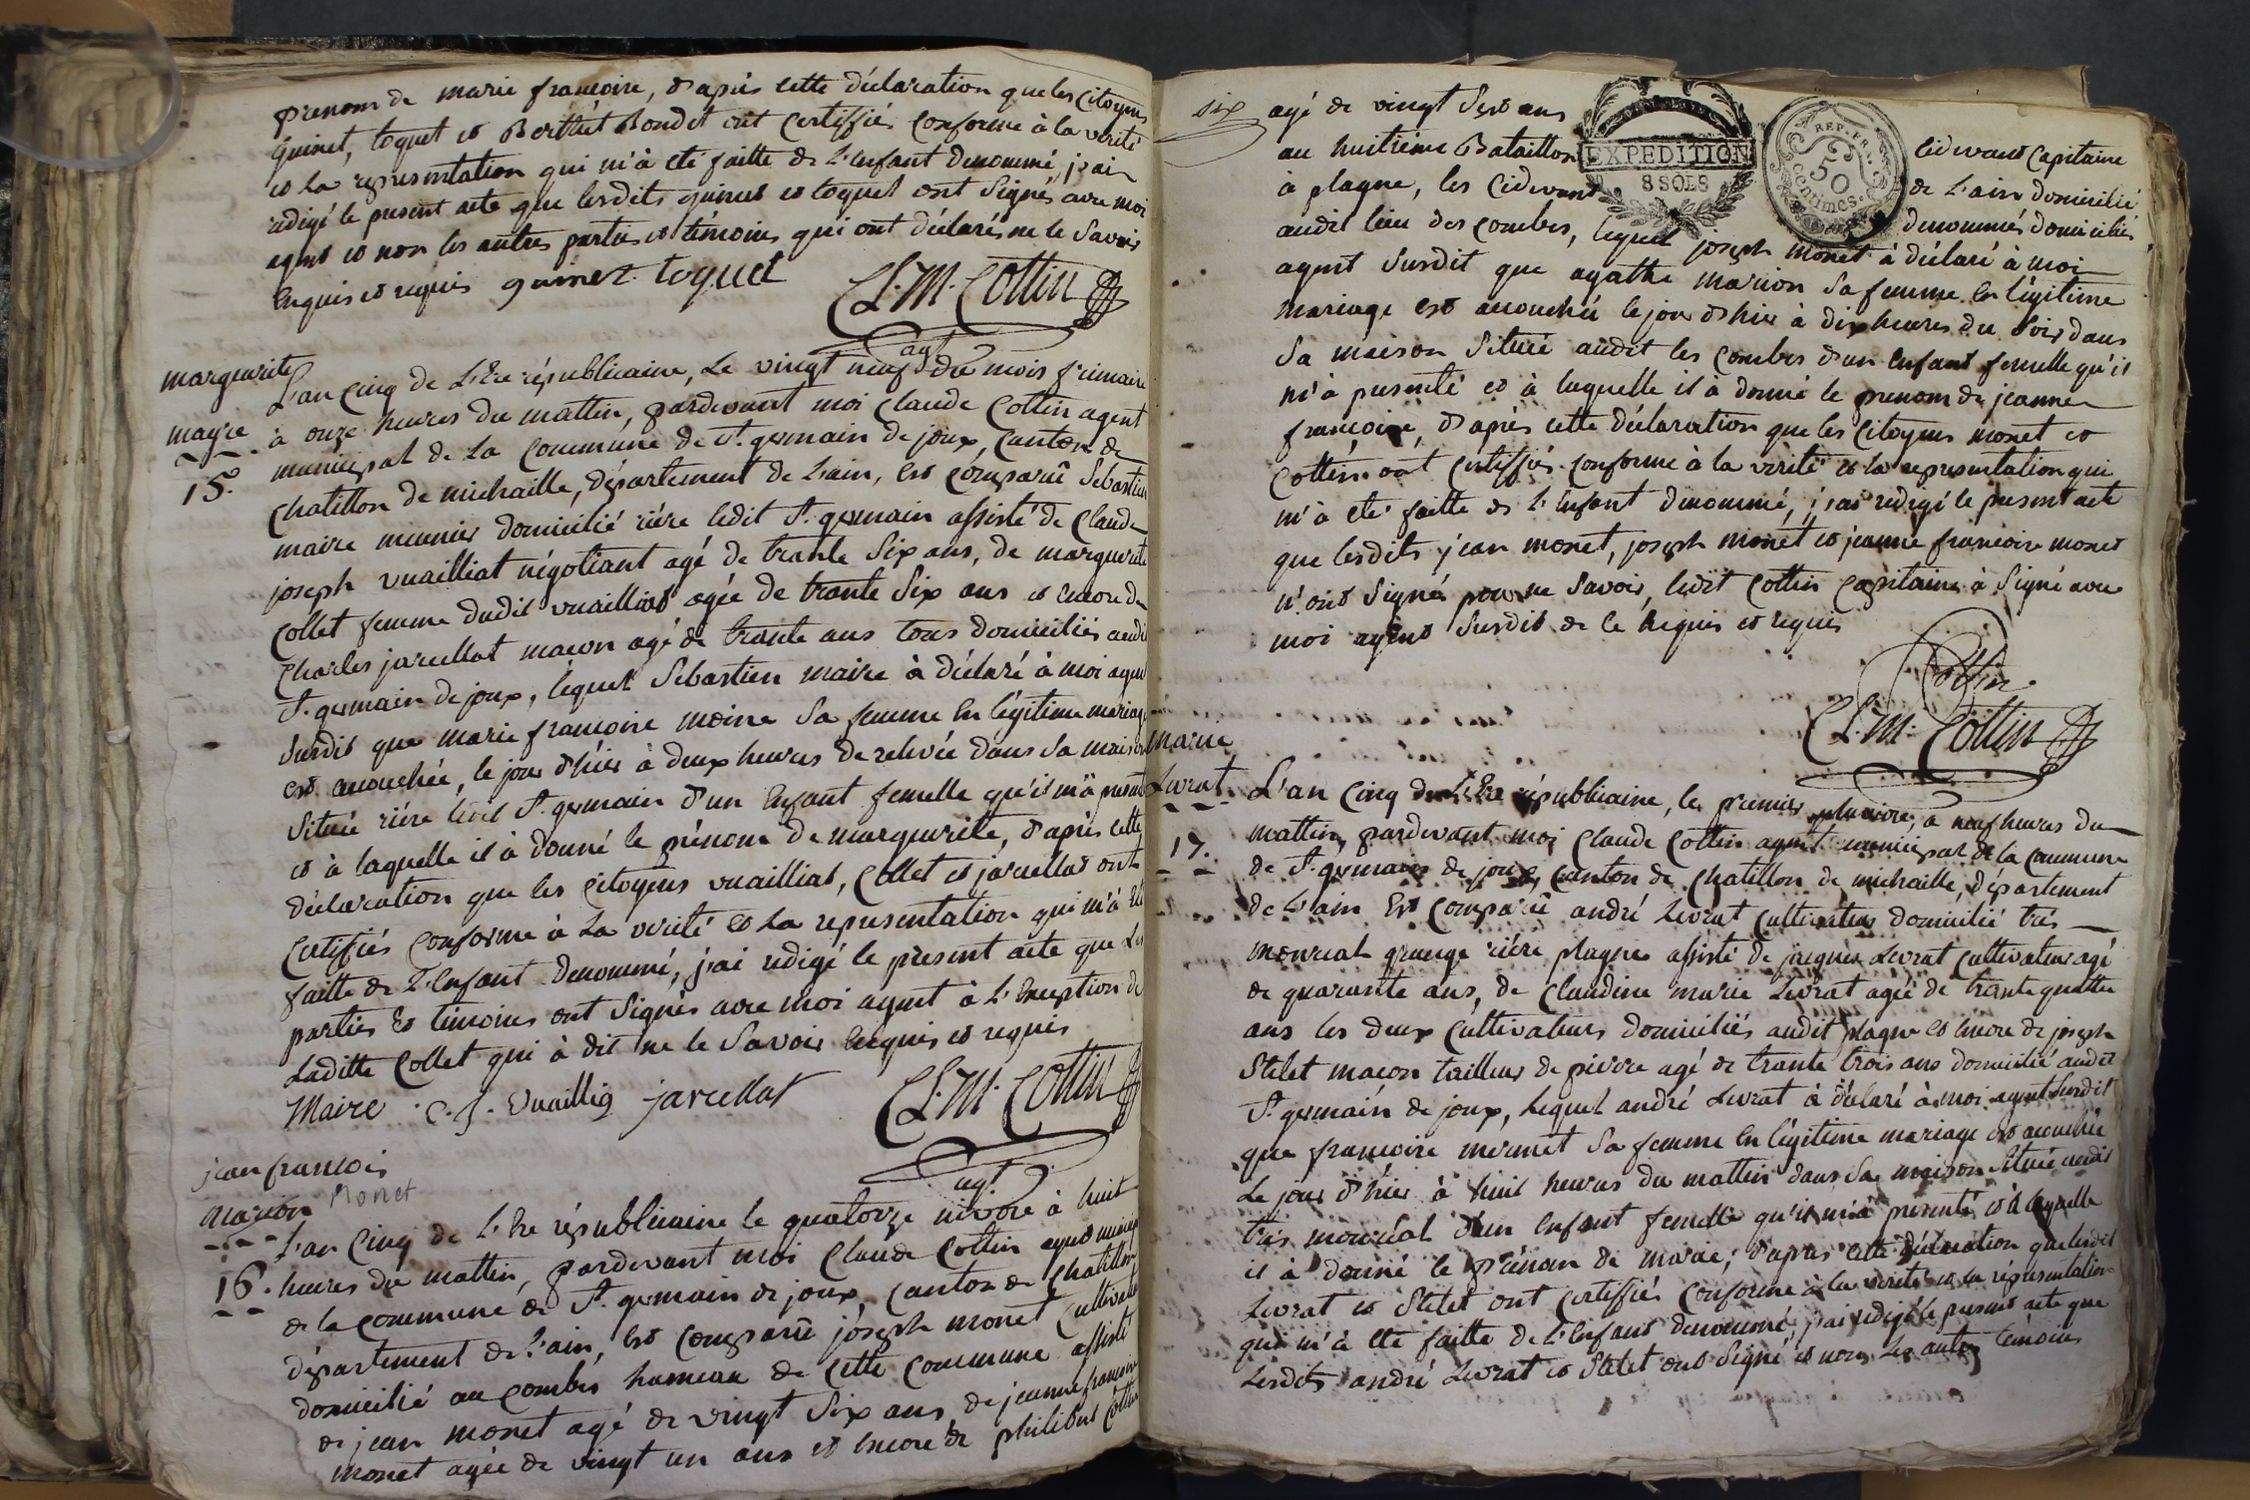 prenom de marie francoise, d'après cette déclaration que les Citoyens
Guinet, toquet et Berthet Bondet ont certiffiés conforme à la vérité
et la representation qui m'à eté faitte de l'Enfant denommé, j'ai
rédigé le present acte que lesdits guinet et toquet ont Signés avec moi
agent et non les autres parties et témoins qui ont déclarés ne le Savoir
Enquis et requis guinet toquet
Cl. M. Cottin
agt
marguerite
maire
15.
L'an Cinq de L'Ere républicaine, Le vingt neuf du mois frimaire
à onze heures du mattin, pardevant moi Claude Cottin agent
municipal de La Commune de St. germain de joux, Canton de
Chatillon de michaille, département de L'ain, est comparû Sebastien
maire meunier domicilié rière ledit St. germain assisté de Claude
joseph vuailliat négotiant agé de trante Six ans, de marguerite
Collet femme dudit vuailliat agée de trante Six ans et encore de
Charles jarcellat macon agé de trante ans tous domiciliés audit
St. germain de joux, lequel Sebastien maire à déclaré à moi agent
Susdit que marie francoise moine Sa femme En légitime mariage
est accouchée, le jour d'hier à deux heures de relevée dans Sa maison
Située rière ledit St. germain d'un Enfant femelle qu'il m'à presenté
et à laquelle il à donné le prénom de marguerite, d'après cette
déclaration que les Citoyens vuailliat, Collet et jarcellat ont
Certiffiés Conforme à La vérité et La representation qui m'à été
faitte de L'Enfant denommé, j'ai redigé le present acte que Les
parties et témoins ont Signés avec moi agent à L'Exception de
Laditte Collet qui à dit ne le Savoir Enquis et requis
Maire C. J. Vuaillia jarcellat Cl. M. Cottin
agt
jean francois
marion Monet
16.
L'an Cinq de L'Ere républicaine le quatorze nivose à huit
heures du mattin, pardevant moi Claude Cottin agent municip
de la commune de St. germain de joux, canton de Chatillon
département de L'ain, est comparû joseph monet Cultivateur
domicilié au combes hameau de cette commune assisté
de jean monet agé de vingt Six ans, de jeanne francoise
monet agée de vingt un ans et encore de philibert Cottin
six
EXPEDITION
8 SOLS
REP. FR.
50
centimes
agé de vingt Sept ans cidevant Capitaine
au huitième Bataillon de L'ain domicilié
à plagne, les cidevant denommés domiciliés
audit lieu des combes, lequel joseph monet à déclaré à moi
agent Susdit que agathe marion Sa femme En légitime
mariage est accouchée le jour d'hier à dix heures du Soir dans
Sa maison Située audit les combes d'un Enfant femelle qu'il
m'à presenté et à laquelle il à donné le prenom de jeanne
francoise, d'après cette déclaration que les Citoyens monet et
Cottin ont certiffiés conforme à la vérité et la representation qui
m'à eté faitte de L'Enfant denommé, j'ai redigé le present acte
que lesdits jean monet, joseph monet et jeanne francoise monet
n'ont Signés pour ne Savoir, ledit Cottin Capitaine à Signé avec
moi agent Susdit de ce Enquis et requis
Cottin
Cl. M. Cottin
marie
Livrat
17.
L'an Cinq de L'Ere républicaine, le premier pluviose, à neuf heures du
mattin, pardevant moi Claude Cottin agent municipal de la Commune
de St. germain de joux, canton de Chatillon de michaille, département
de L'ain Est comparû andré Livrat Cultivateur domicilié très
mourat grange rière plagne assisté de jacques Livrat Cultivateur agé
de quarante ans, de Claudine marie Livrat agée de trante quattre
ans les deux Cultivateurs domiciliés audit plagne et encore de joseph
Stelet macon tailleur de pierre agé de trante trois ans domicilié audit
St. germain de joux, Lequel andré Livrat à déclaré à moi agent Susdit
que francoise mermet Sa femme En légitime mariage est accouchée
Le jour d'hier à huit heures du mattin dans Sa maison Située audit
très mourat d'un Enfant femelle qu'il m'à presenté et à laquelle
il à donné le prénom de marie, d'après cette déclaration que lesdit
Livrat et Stelet ont certiffiés Conforme à la vérité et la répresentation
qui m'à eté faitte de L'Enfant denommé j'ai redigé le present acte que
Lesdits andré Livrat et Stelet ont Signé et non Les autres témoins